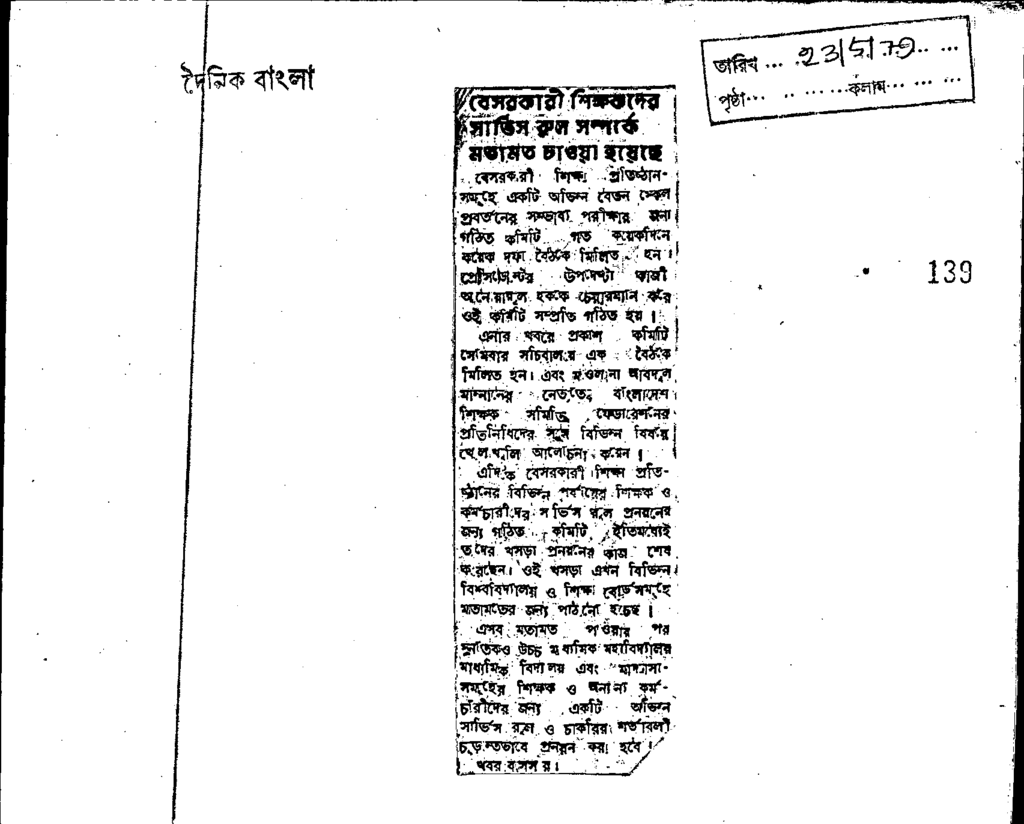 দৈনিক বাংলা
তারিখ ... 23/5/79 ... ...
পৃষ্ঠা... ... ... ...কলাম... ... ...
139
বেসরকারী শিক্ষকদের
সার্ভিস রুল সম্পর্কে
মতামত চাওয়া হয়েছে
বেসরকারী শিক্ষা প্রতিষ্ঠান-
সমূহে একটি অভিন্ন বেতন স্কেল
প্রবর্তনের সম্ভাব্য পরীক্ষার জন্য
গঠিত কমিটি গত কয়েকদিনে
কয়েক দফা বৈঠকে মিলিত হন।
প্রেসিডেন্টের উপদেষ্টা কাজী
আনোয়ারুল হককে চেয়ারম্যান করে
ওই কমিটি সম্প্রতি গঠিত হয়।
এনার খবরে প্রকাশ কমিটি
সোমবার সচিবালয়ে এক বৈঠকে
মিলিত হন। এবং মওলানা আবদুল
মান্নানের নেতৃত্বে বাংলাদেশ
শিক্ষক সমিতি ফেডারেশনের
প্রতিনিধিদের সঙ্গে বিভিন্ন বিষয়ে
খোলাখুলি আলোচনা করেন।
এদিকে বেসরকারী শিক্ষা প্রতি-
ষ্ঠানের বিভিন্ন পর্যায়ের শিক্ষক ও
কর্মচারীদের সার্ভিস রুল প্রনয়নের
জন্য গঠিত কমিটি ইতিমধ্যেই
তাদের খসড়া প্রনয়নের কাজ শেষ
করেছেন। ওই খসড়া এখন বিভিন্ন
বিশ্ববিদ্যালয় ও শিক্ষা বোর্ডসমূহে
মতামতের জন্য পাঠানো হচ্ছে।
এসব মতামত পাওয়ার পর
স্নাতকও উচ্চ মাধ্যমিক মহাবিদ্যালয়
মাধ্যমিক বিদ্যালয় এবং মাদ্রাসা-
সমূহের শিক্ষক ও অন্যান্য কর্ম-
চারীদের জন্য একটি অভিন্ন
সার্ভিস রুল ও চাকরির শর্তাবলী
চূড়ান্তভাবে প্রনয়ন করা হবে।
খবর বাসসর।